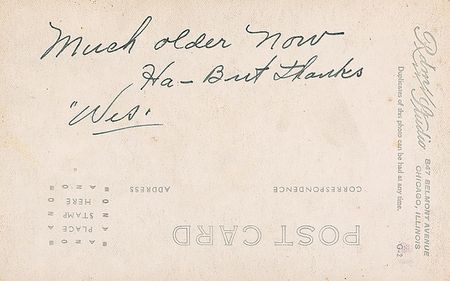 Much older now
Ha - But Thanks
"Wes.
Studio
847 BELMONT AVENUE
CHICAGO, ILLINOIS
Duplicates of this photo can be had at any time.
G-2
CORRESPONDENCE
ADDRESS
POST CARD
PLACE
STAMP
HERE